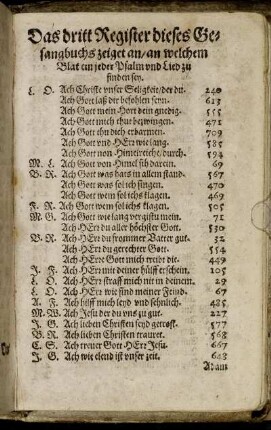 Das dritt Register dieses Ge-
sangbuchs zeiget an/ an welchem
Blat ein jeder Psalm vnd Lied zu
finden sey.
L. O. Ach Christe vnser Seligkeit/ der du. 240
Ach Gott laß dir befohlen seyn. 613
Ach Gott mein Hort dein gnedig. 555
Ach Gott mich thut bezwingen. 471
Ach Gott thu dich erbarmen. 709
Ach Gott vnd HErr wie lang. 585
Ach Gott von Himelreiche/ durch. 594
M. L. Ach Gott von Himel sih darein. 69
B. R. Ach Gott was hats in allem stand. 567
Ach Gott was sol ich singen. 470
Ach Gott wem sol ichs klagen. 469
F. R. Ach Gott wem sol ichs klagen. 505
M. G. Ach Gott wie lang vergist mein. 71
Ach HErr du aller höchster Gott. 530
B. R. Ach HErr du frommer Vatter gut. 52
Ach HErr du gerechter Gott. 554
Ach HErre Gott mich treibt die. 449
J. F. Ach HErr mit deiner hülff erschein. 105
L. O. Ach HErr straff mich nit in deinem. 29
L. O. Ach HErr wie sind meiner Feind. 67
A. F. Ach hilff mich leyd vnd sehnlich. 485
M. W. Ach Jesu der du vns zu gut. 227
J. G. Ach lieben Christen seyd getrost. 577
B. R. Ach lieben Christen trauret. 568
C. S. Ach trewer Gott HErr Jesu. 667
J. G. Ach wie elend ist vnser zeit. 643
Adam